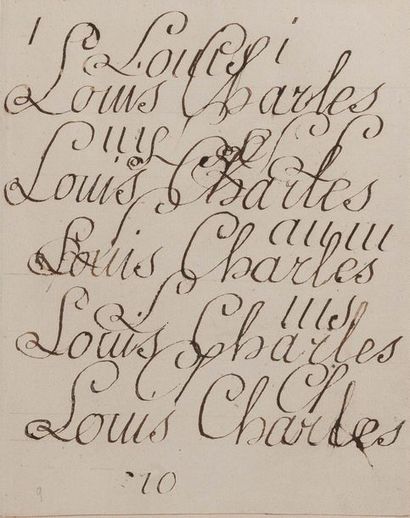 Louis
Louis Charles
Louis Charles
Louis Charles
Louis Charles
Louis Charles
10